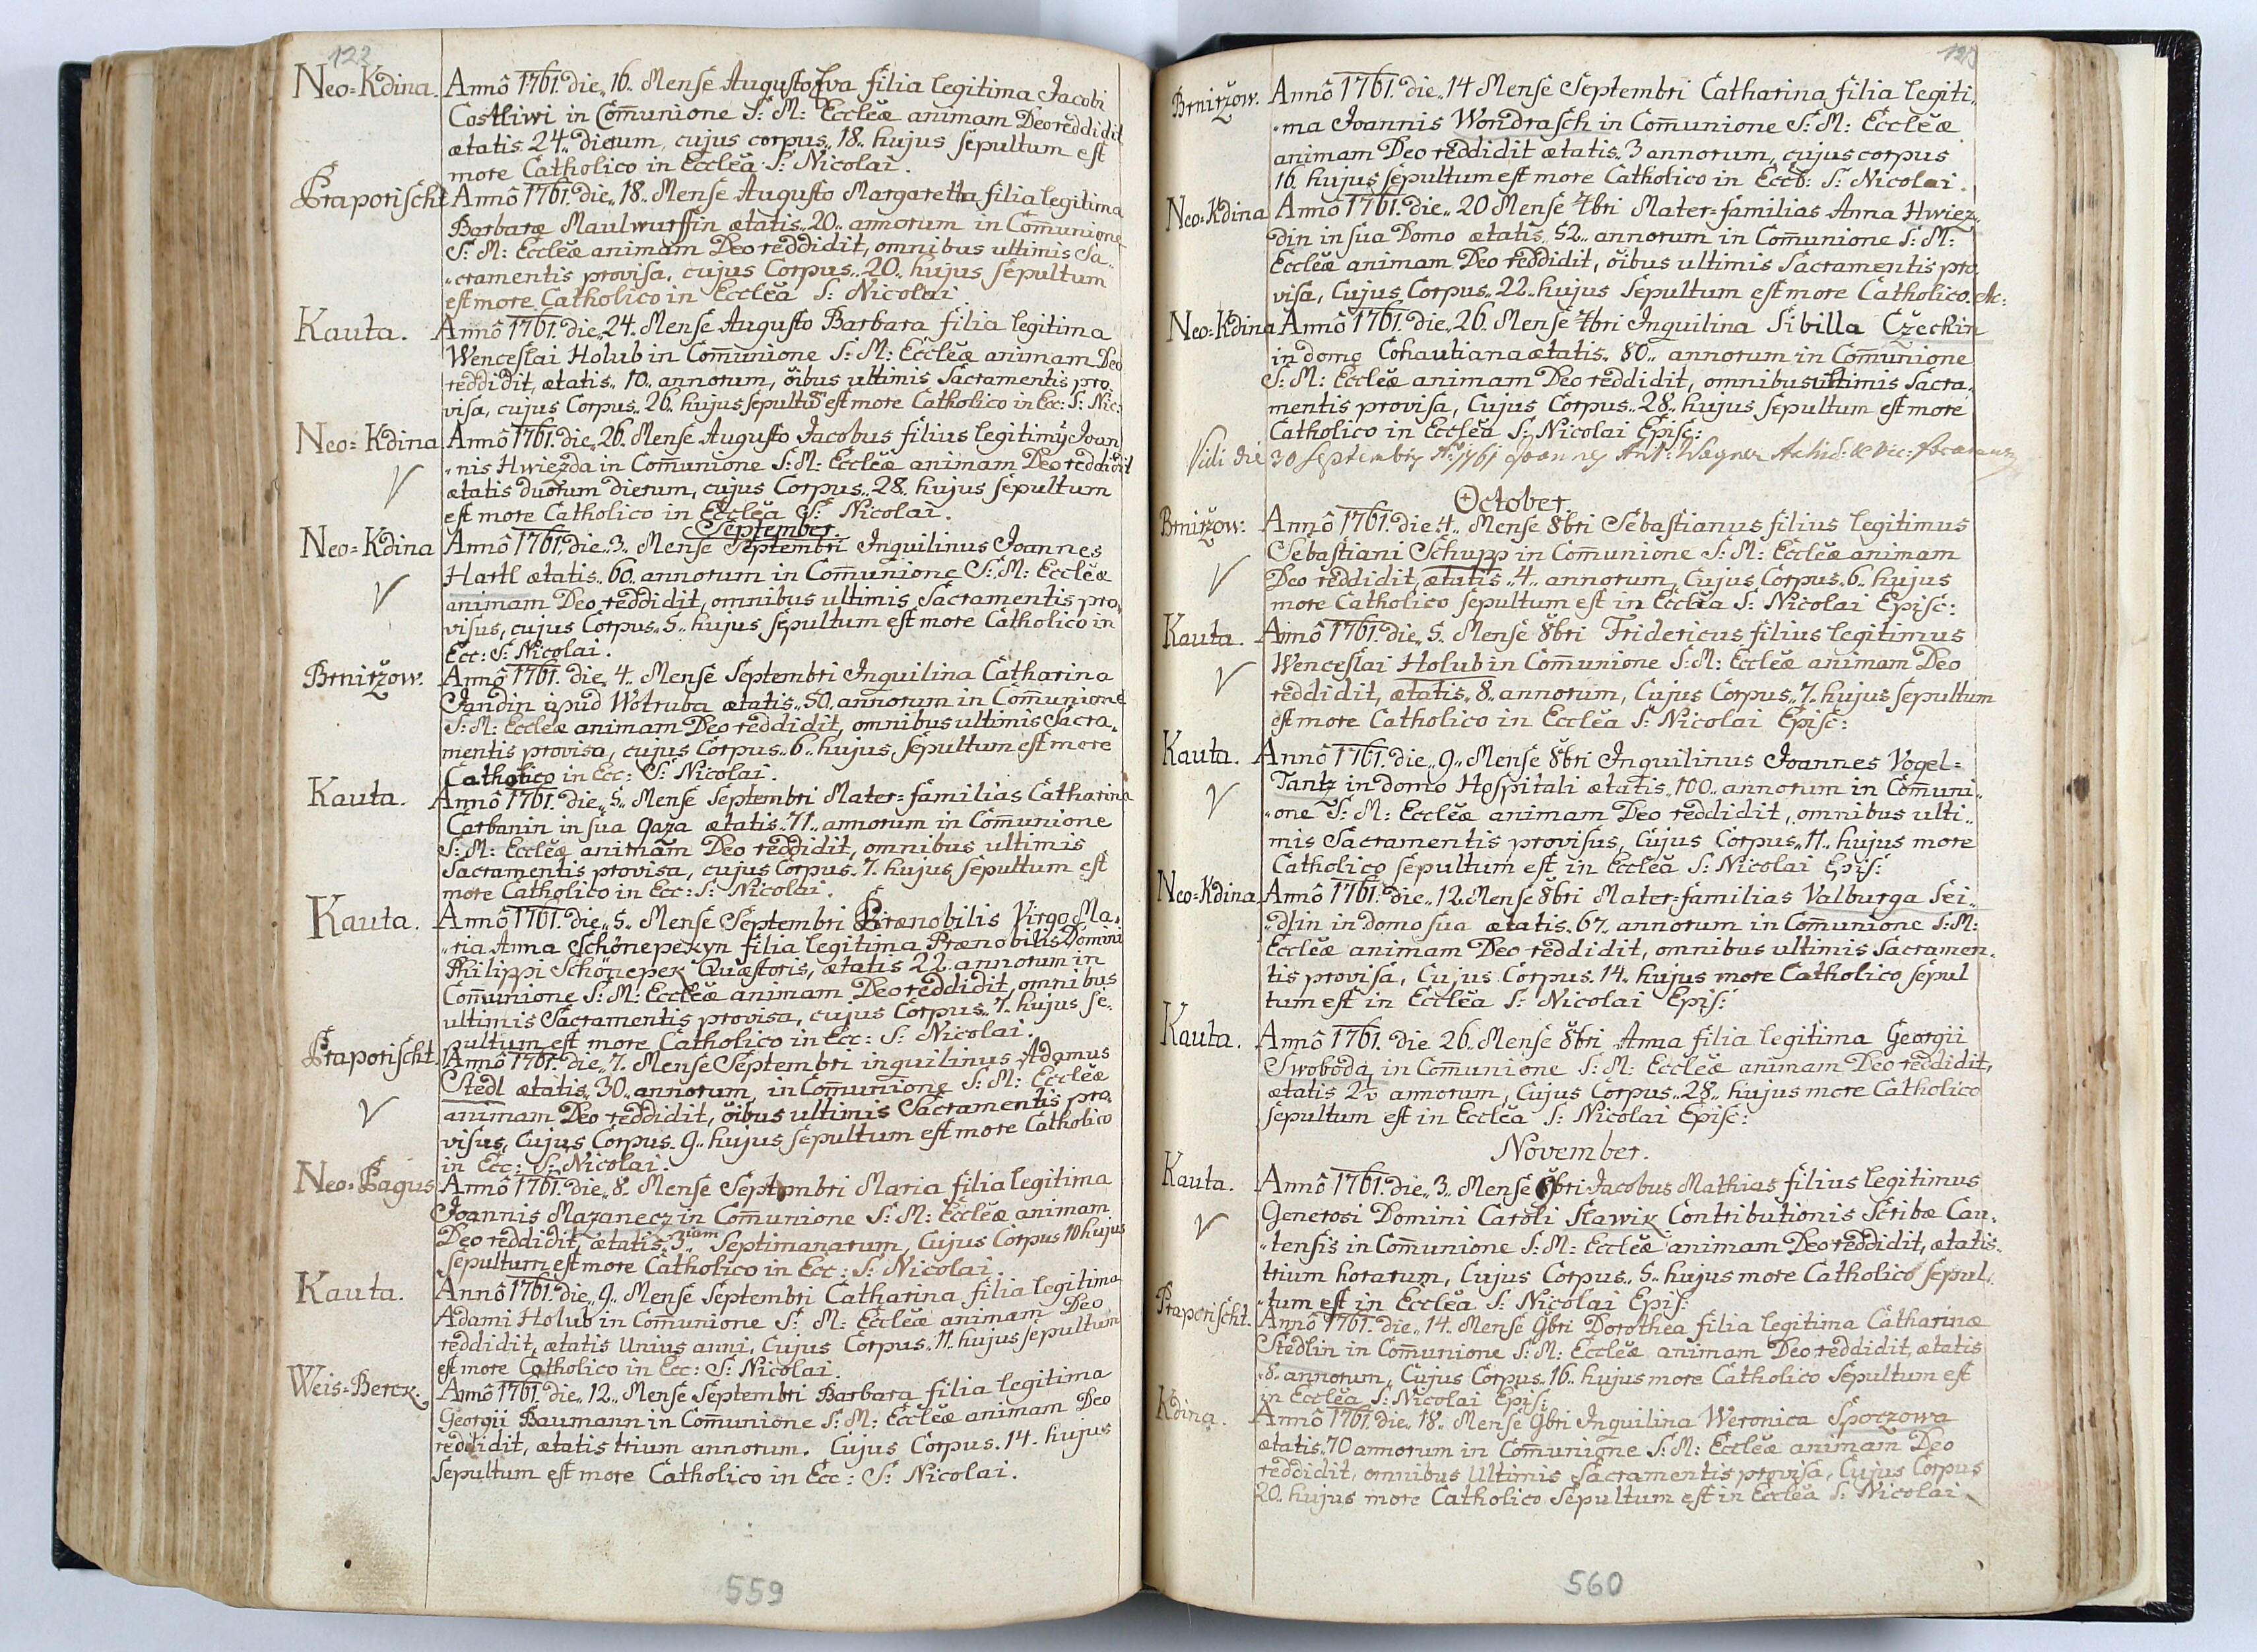 122
Neo=Kdina. Annô 1761. die,, 16. Mense Augusto Eva filia legitima Jacobi
Costliwi in Com̄unione S: M: Eccleæ animam Deo reddidit
ætatis 24,, dierum, cujus corpus,, 18,, hujus sepultum est
more Catholico in Ecclea S: Nicolai.
Praporischt. Annô 1761. die,, 18,, Mense Augusto Margaretha filia legitima
Barbaræ Maulwurffin ætatis,, 20,, annorum in Com̄unione
S: M: Eccleæ animam Deo reddidit, omnibus ultimis Sa,,
,,cramentis provisa, cujus Corpus,, 20,, hujus sepultum
est more Catholico in Ecclea S: Nicolai
Kauta. Annô 1761. die,, 24. Mense Augusto Barbara filia legitima
Wenceslai Holub in Com̄unione S: M: Eccleæ animam Deo
reddidit, ætatis,, 10,, annorum, õibus ultimis Sacramentis pro,
visa, cujus Corpus,, 26,, hujus sepultū est more Catholico in Ecc: S: Nic:
Neo=Kdina Annô 1761. die,, 26. Mense Augusto Jacobus filius legitimỹ Joan
,,nis Hwiezda in Com̄unione S: M: Eccleæ animam Deo reddidit
ætatis duorum dierum, cujus Corpus,, 28,, hujus sepultum
est more Catholico in Ecclea S: Nicolai.
September.
Neo=Kdina Annô 1761. die,, 3,, Mense Septembri Inquilinus Joannes
Hartl ætatis,, 60,, annorum in Com̄unione S: M: Eccleæ
animam Deo reddidit, omnibus ultimis Sacramentis pro,
visus, cujus Corpus,, 5,, hujus sepultum est more Catholico in
Ecc: S: Nicolai.
Brnirżow. Annô 1761. die,, 4,, Mense Septembri Inquilina Catharina
Jandin apud Wotruba ætatis,, 50,, annorum in Com̄unione
S: M: Eccleæ animam Deo reddidit, omnibus ultimis Sacra,
mentis provisa, cujus Corpus,, 6,, hujus sepultum est more
Catholico in Ecc: S: Nicolai.
Kauta. Annô 1761. die,, 5,, Mense Septembri Mater=familias Catharina
Carbanin in sua gaza ætatis,, 71,, annorum in Com̄unione
S: M: Eccleæ animam Deo reddidit, omnibus ultimis
Sacramentis provisa, cujus Corpus,, 7. hujus sepultum est
more Catholico in Ecc: S: Nicolai.
Kauta. Annô 1761. die,, 5,, Mense Septembri Prænobilis Virgo Ma,
,,ria Anna Schönepekyn filia legitima Prænobilis Domini
Philippi Schönepek Quæstoris, ætatis 22. annorum in
Com̄unione S: M: Eccleæ animam Deo reddidit, omnibus
ultimis Sacramentis provisa, cujus Corpus,, 7,, hujus se,
pultum est more Catholico in Ecc: S: Nicolai.
Praporischt. Annô 1761. die,, 7. Mense Septembri inquilinus Adamus
Stedl ætatis,, 30,, annorum, in Com̄unione S: M: Eccleæ
animam Deo reddidit, õibus ultimis Sacramentis pro,
visus, Cujus Corpus. 9,, hujus sepultum est more Catholico
in Ecc: S: Nicolai.
Neo=Pagus Annô 1761. die,, 8. Mense Septembri Maria filia legitima
Joannis Mazanecz in Com̄unione S: M: Eccleæ animam
Deo reddidit, ætatis,, 3,,ium Septimanarum, Cujus Corpus 10 hujus
sepultum est more Catholico in Ecc: S: Nicolai.
Kauta. Annô 1761. die,, 9,, Mense Septembri Catharina filia legitima
Adami Holub in Com̄unione S: M: Eccleæ animam Deo
reddidit, ætatis Unius anni, Cujus Corpus,, 11,, hujus sepultum
est more Catholico in Ecc: S: Nicolai.
Weis=Berck. Annô 1761. die,, 12,, Mense Septembri Barbara filia legitima
Georgii Baumann in Com̄unione S: M: Eccleæ animam Deo
reddidit, ætatis trium annorum. Cujus Corpus. 14. hujus
sepultum est more Catholico in Ecc: S: Nicolai.
559
123
Brnirżow. Annô 1761. die,, 14 Mense Septembri Catharina filia legiti,,
,,ma Joannis Wondrasch in Com̄unione S: M: Eccleæ
animam Deo reddidit ætatis,, 3 annorum, cujus corpus
16. hujus sepultum est more Catholico in Eccl: S: Nicolai.
Neo=Kdina Annô 1761. die,, 20 Mense 7bri Mater=familias Anna Hwiez,,
din in sua Domo ætatis,, 52,, annorum in Com̄unione S: M:
Eccleæ animam Deo reddidit, õibus ultimis Sacramentis pro,
visa, Cujus Corpus,, 22,, hujus sepultum est more Catholico. etc:
Neo=Kdina Annô 1761. die,, 26. Mense 7bri Inquilina Sibilla Czechin
in domo Cohautiana ætatis. 80,, annorum in Com̄unione
S: M: Eccleæ animam Deo reddidit, omnibus ultimis Sacra,
mentis provisa, Cujus Corpus,, 28,, hujus sepultum est more
Catholico in Ecclea S: Nicolai Episc:
Vidi die 30 Septembris Aô 1761 Joannes Ant: Wagner Achid: & Vic: foraneus
October.
Brnirżow: Annô 1761. die 4,, Mense 8bri Sebastianus filius legitimus
Sebastiani Schupp in Com̄unione S: M: Eccleæ animam
Deo reddidit, ætatis,, 4,, annorum, Cujus Corpus,, 6,, hujus
more Catholico sepultum est in Ecclea S: Nicolai Episc:
Kauta. Annô 1761. die,, 5. Mense 8bri Fridericus filius legitimus
Wenceslai Holub in Com̄unione S: M: Eccleæ animam Deo
reddidit, ætatis,, 8,, annorum, Cujus Corpus,, 7,, hujus sepultum
est more Catholico in Ecclea S: Nicolai Episc:
Kauta. Annô 1761. die,, 9,, Mense 8bri Inquilinus Joannes Vogel=
Tantz in domo Hospitali ætatis,, 100,, annorum in Com̄uni,,
,,one S: M: Eccleæ animam Deo reddidit, omnibus ulti,,
mis Sacramentis provisus, Cujus Corpus,, 11,, hujus more
Catholico sepultum est in Ecclea S: Nicolai Epis:
Neo=Kdina Annô 1761. die,, 12. Mense 8bri Mater=familias Valburga Sei,,
,,dlin in domo sua ætatis,, 67,, annorum in Com̄unione S: M:
Eccleæ animam Deo reddidit, omnibus ultimis Sacramen,
tis provisa, Cujus Corpus. 14,, hujus more Catholico sepul
tum est in Ecclea S: Nicolai Epis:
Kauta. Annô 1761. die 26,, Mense 8bri Anna filia legitima Georgii
Swoboda in Com̄unione S: M: Eccleæ animam Deo reddidit,
ætatis annorum, Cujus Corpus,, 28,, hujus more Catholico
sepultum est in Ecclea S: Nicolai Episc:
November.
Kauta. Annô 1761. die,, 3. Mense 9bri Jacobus Mathias filius legitimus
Generosi Domini Caroli Slawik Contributionis Scribæ Cau,
,,tensis in Com̄unione S: M: Eccleæ animam Deo reddidit, ætatis,
trium horarum, Cujus Corpus,, 5,, hujus more Catholico sepul,
,,tum est in Ecclea S: Nicolai Epis:
Praporischt. Annô 1761. die,, 14. Mense 9bri Dorothea filia legitima Catharinæ
Stedlin in Com̄unione S: M: Eccleæ animam Deo reddidit, ætatis
,,8,, annorum, Cujus Corpus,, 16,, hujus more Catholico sepultum est
in Ecclea S: Nicolai Epis:
Kdina. Annô 1761. die,, 18,, Mense 9bri Inquilina Weronica Spoczowa
ætatis,, 70 annorum in Com̄unione S: M: Eccleæ animam Deo
reddidit, omnibus Ultimis Sacramentis provisa, Cujus Corpus
20,, hujus more Catholico sepultum est in Ecclea S: Nicolai
560